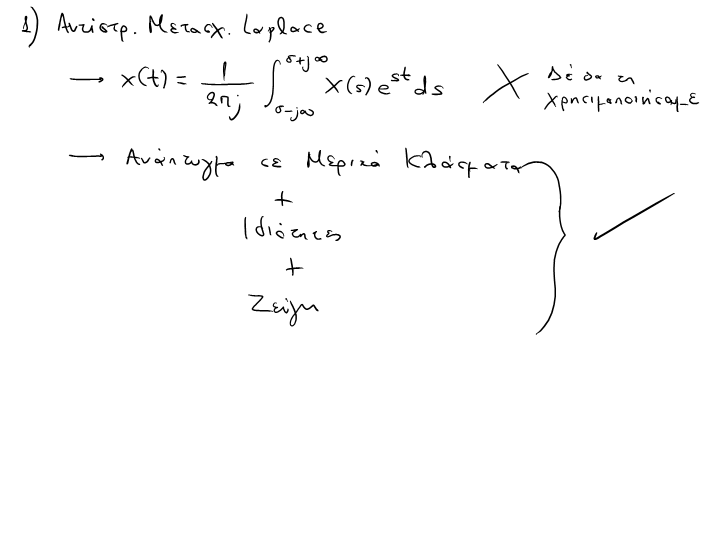 1) Αντίστρ. Μετασχ. Laplace
→ x(t) = \frac{1}{2πj} \int_{σ-j∞}^{σ+j∞} X(s) e^{st} ds  X  Δέ θα τη
χρησιμοποιήσουμε
→ Ανάπτυγμα σε Μερικά Κλάσματα
+
Ιδιότητες
+
Ζεύγη